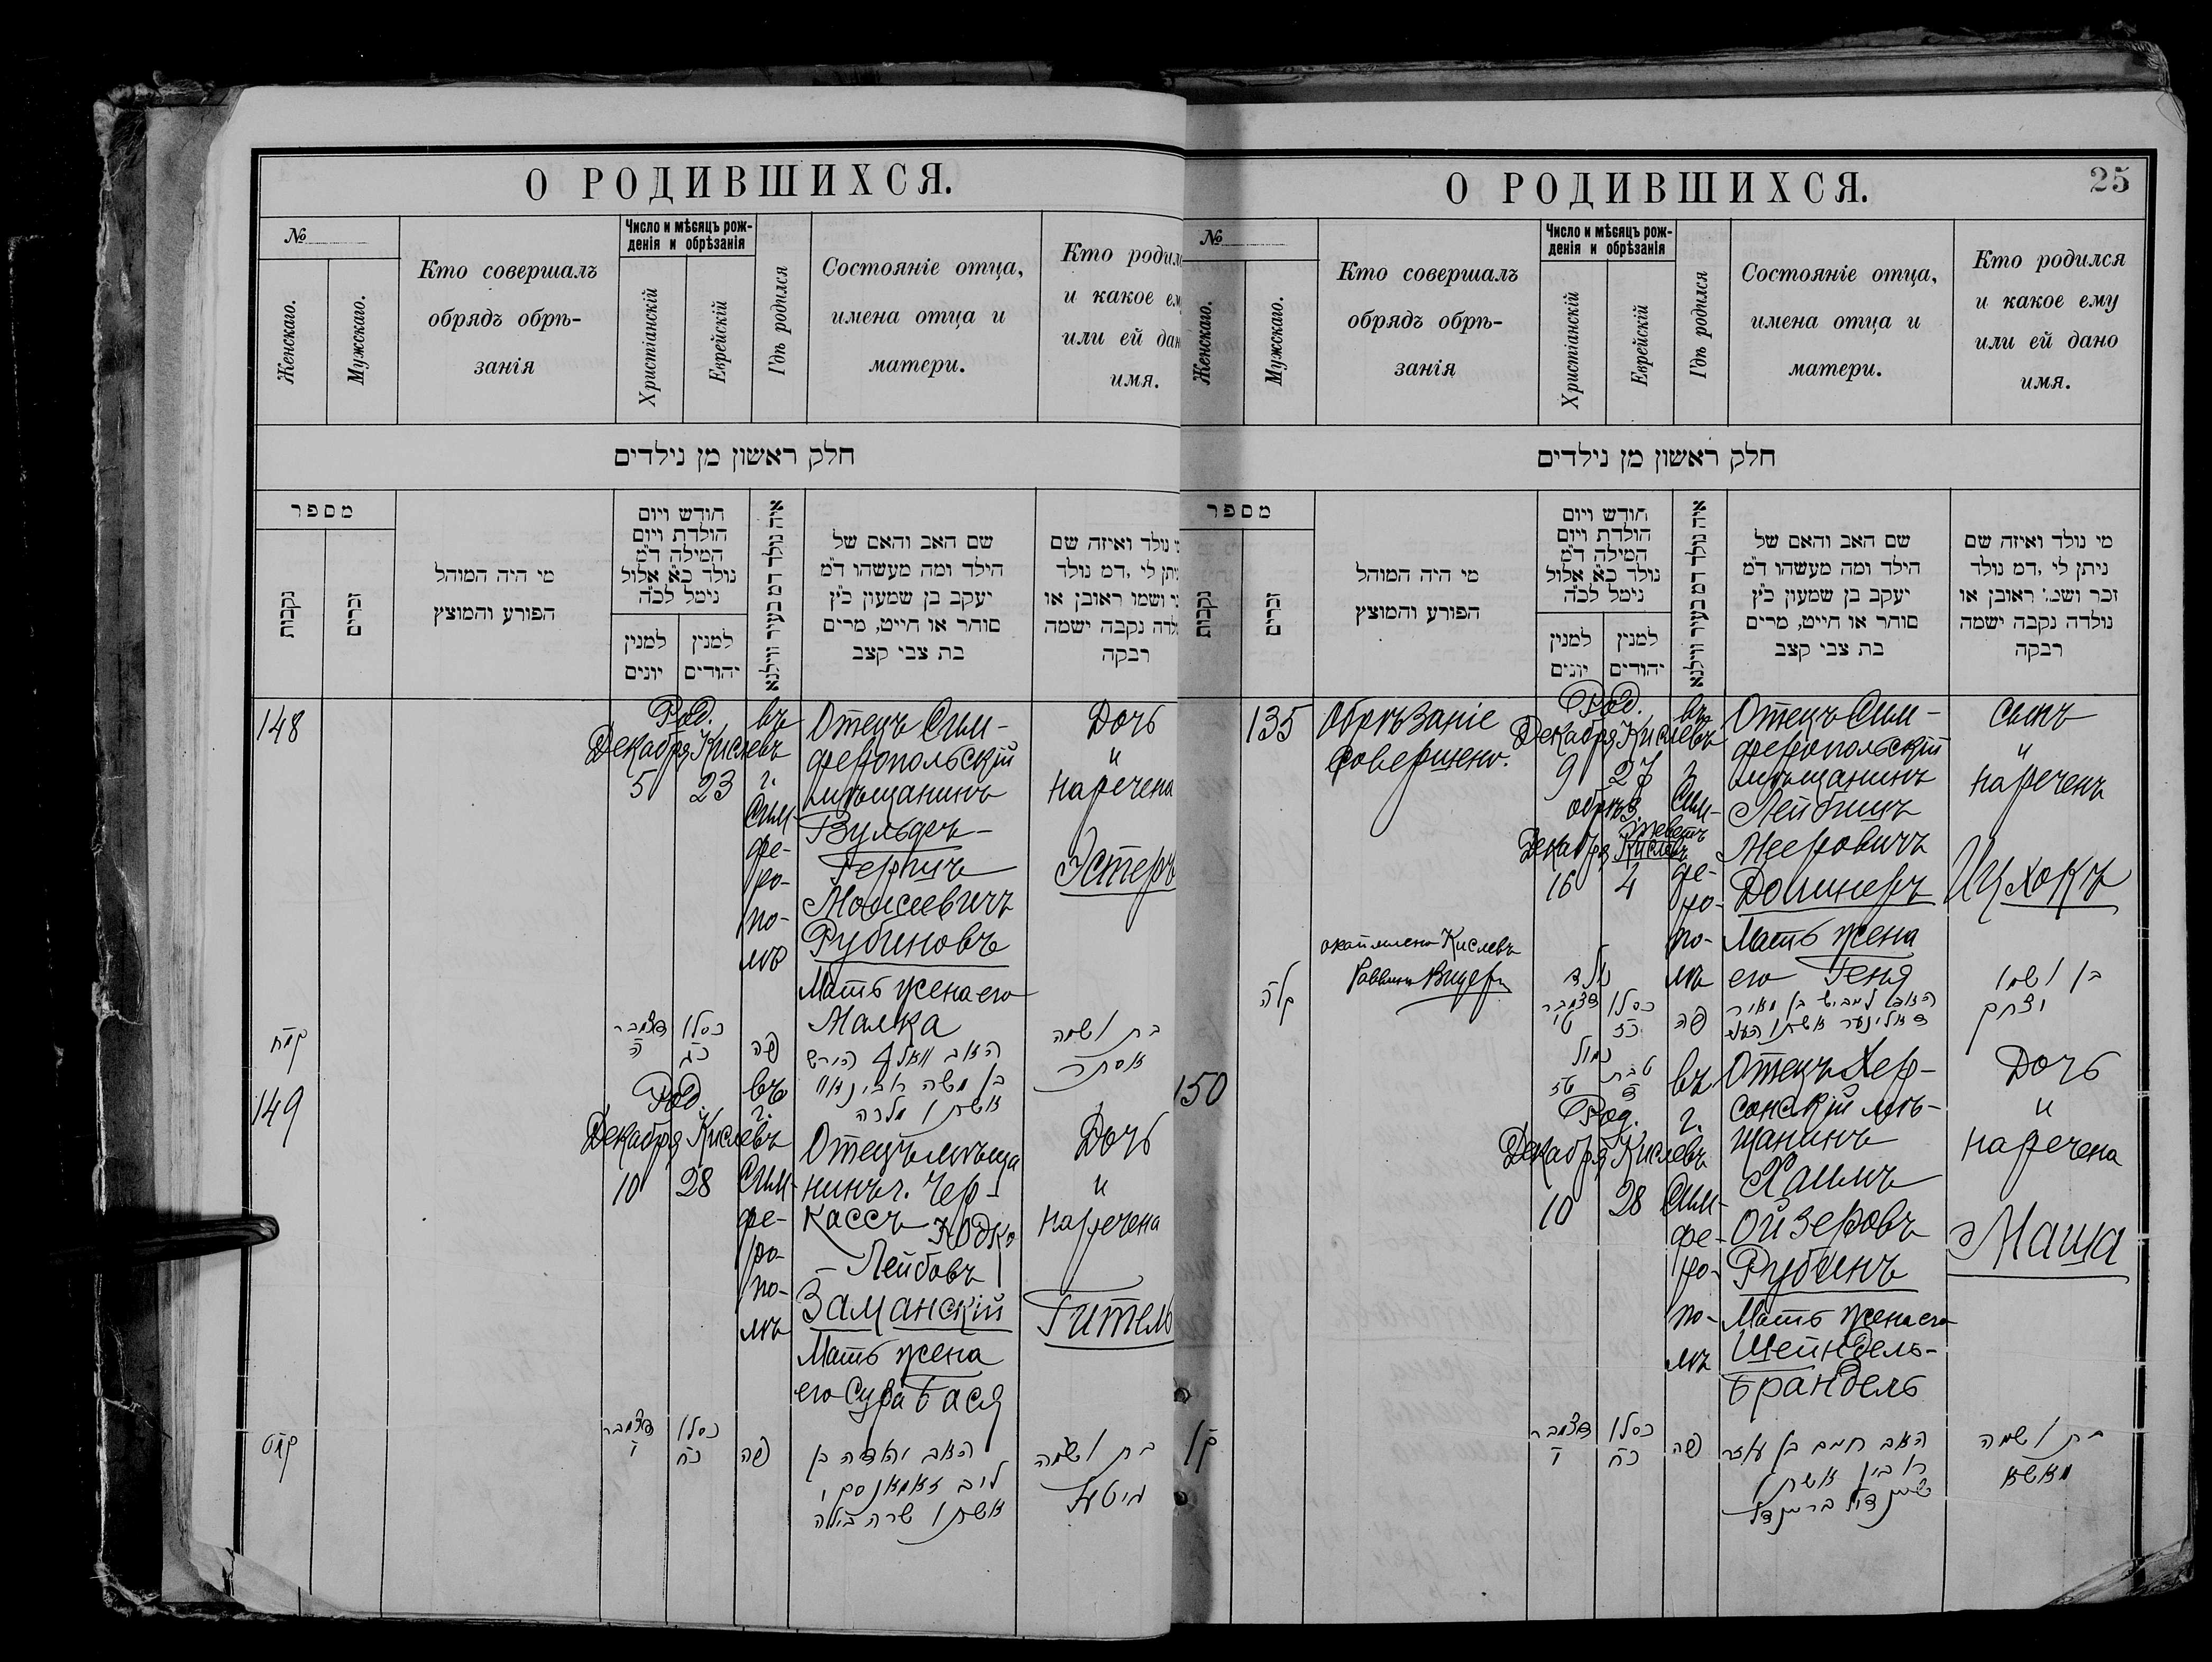 О РОДИВШИХСЯ.
№
Женскаго.
Мужскаго.
Кто совершалъ
обрядъ обрѣ-
занія
Число и мѣсяцъ рож-
денія и обрѣзанія
Христіанскій
Еврейскій
Гдѣ родился
Состояніе отца,
имена отца и
матери.
Кто родил
и какое ем
или ей дан
имя.
חלק ראשון מן נילדים
מספר
נקבות
זכרים
מי היה המוהל
הפורע והמוצץ
חודש ויום
הולדת ויום
המילה ד״מ
נולד כ״א אלול
נימל לכ״ה
למנין
יונים
למנין
יהודים
איה נולד דמ בעיר ווילנא
שם האב והאם של
הילד ומה מעשהו ד״מ
יעקב בן שמעון כ״ץ
סוחר או חייט, מרים
בת צבי קצב
נולד ואיזה שם
יתן לי ,דמ נולד
ושמו ראובן או
לדה נקבה ישמה
רבקה
148
Род.
Декабря Кислевъ
5 23
въ
г.
Сим-
фе-
ро-
по-
лѣ
Отецъ Сим-
феропольскій
мѣщанинъ
Вульфъ-
Гершъ
Моисеевичъ
Рубиновъ
Мать жена его
Малка
Дочь
и
наречена
Эстеръ
קמח
דצמבר
ה
כסלו
כג
פה
האב וואלף הירש
בן משה רובינאוו
אשתו מלכה
בת ושמה
אסתר
149
Род.
Декабря Кислевъ
10 28
въ
г.
Сим-
фе-
ро-
по-
лѣ
Отецъ мѣща
нинъ г. Чер-
кассъ Юдко
Лейбовъ
Заманскій
Мать жена
его Сура Бася
Дочь
и
наречена
Гитель
קמט
דצמבר
י
כסלו
כח
פה
האב יהודה בן
ליב זאמאנסקי
אשתו שרה
בת ושמה
גיטעל
О РОДИВШИХСЯ.
25
№
Женскаго.
Мужскаго.
Кто совершалъ
обрядъ обрѣ-
занія
Число и мѣсяцъ рож-
денія и обрѣзанія
Христіанскій
Еврейскій
Гдѣ родился
Состояніе отца,
имена отца и
матери.
Кто родился
и какое ему
или ей дано
имя.
חלק ראשון מן נילדים
מספר
נקבות
זכרים
מי היה המוהל
הפורע והמוצץ
חודש ויום
הולדת ויום
המילה ד״מ
נולד כ״א אלול
נימל לכ״ה
למנין
יונים
למנין
יהודים
איה נולד דמ בעיר ווילנא
שם האב והאם של
הילד ומה מעשהו ד״מ
יעקב בן שמעון כ״ץ
סוחר או חייט, מרים
בת צבי קצב
מי נולד ואיזה שם
ניתן לי ,דמ נולד
זכר ושמו ראובן או
נולדה נקבה ישמה
רבקה
135
Обрѣзаніе
совершено.
Род.
Декабря Кислевъ
9 27
обрѣз.
Теветъ
Декабря Кислевъ
16 4
въ
г.
Сим-
фе-
ро-
по-
лѣ
Отецъ Сим-
феропольскій
мѣщанинъ
Лейбишъ
Мееровичъ
Долинеръ
Мать жена
его Геня
сынъ
и
нареченъ
Ицхокъ
Кислевъ
Раввинъ
קלה
נולד
דצמבר
ט
כסלו
כז
נמול
טז
טבת
ד
פה
האב לייביש בן מאיר
דאלינער אשתו העניא
בן ושמו
יצחק
150
Род.
Декабря Кислевъ
10 28
въ
г.
Сим-
фе-
ро-
по-
лѣ
Отецъ Хер-
сонскій мѣ-
щанинъ
Хаимъ
Ойзеровъ
Рубинъ
Мать жена его
Шейндель-
Брандель
Дочь
и
наречена
Маша
קן
דצמבר
י
כסלו
כח
פה
האב חיים בן עוזר
רובין אשתו
שיינדיל בריינדל
בת ושמה
מאשא